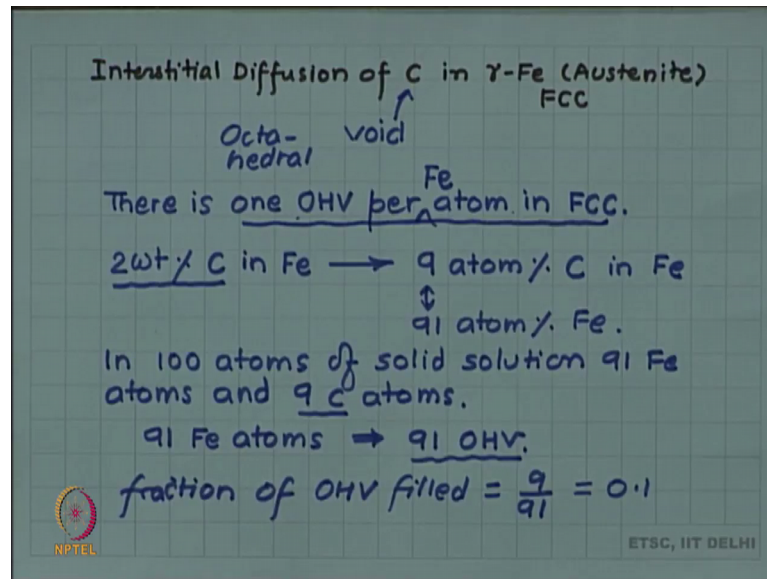 Interstitial Diffusion of C in γ-Fe (Austenite)
FCC
Octa- void
hedral
Fe
There is one OHV per ^ atom in FCC.
2wt % C in Fe → 9 atom %. C in Fe
↕
91 atom %. Fe.
In 100 atoms of solid solution 91 Fe
atoms and 9 C atoms.
91 Fe atoms ⇒ 91 OHV.
fraction of OHV filled = 9/91 = 0.1
NPTEL
ETSC, IIT DELHI